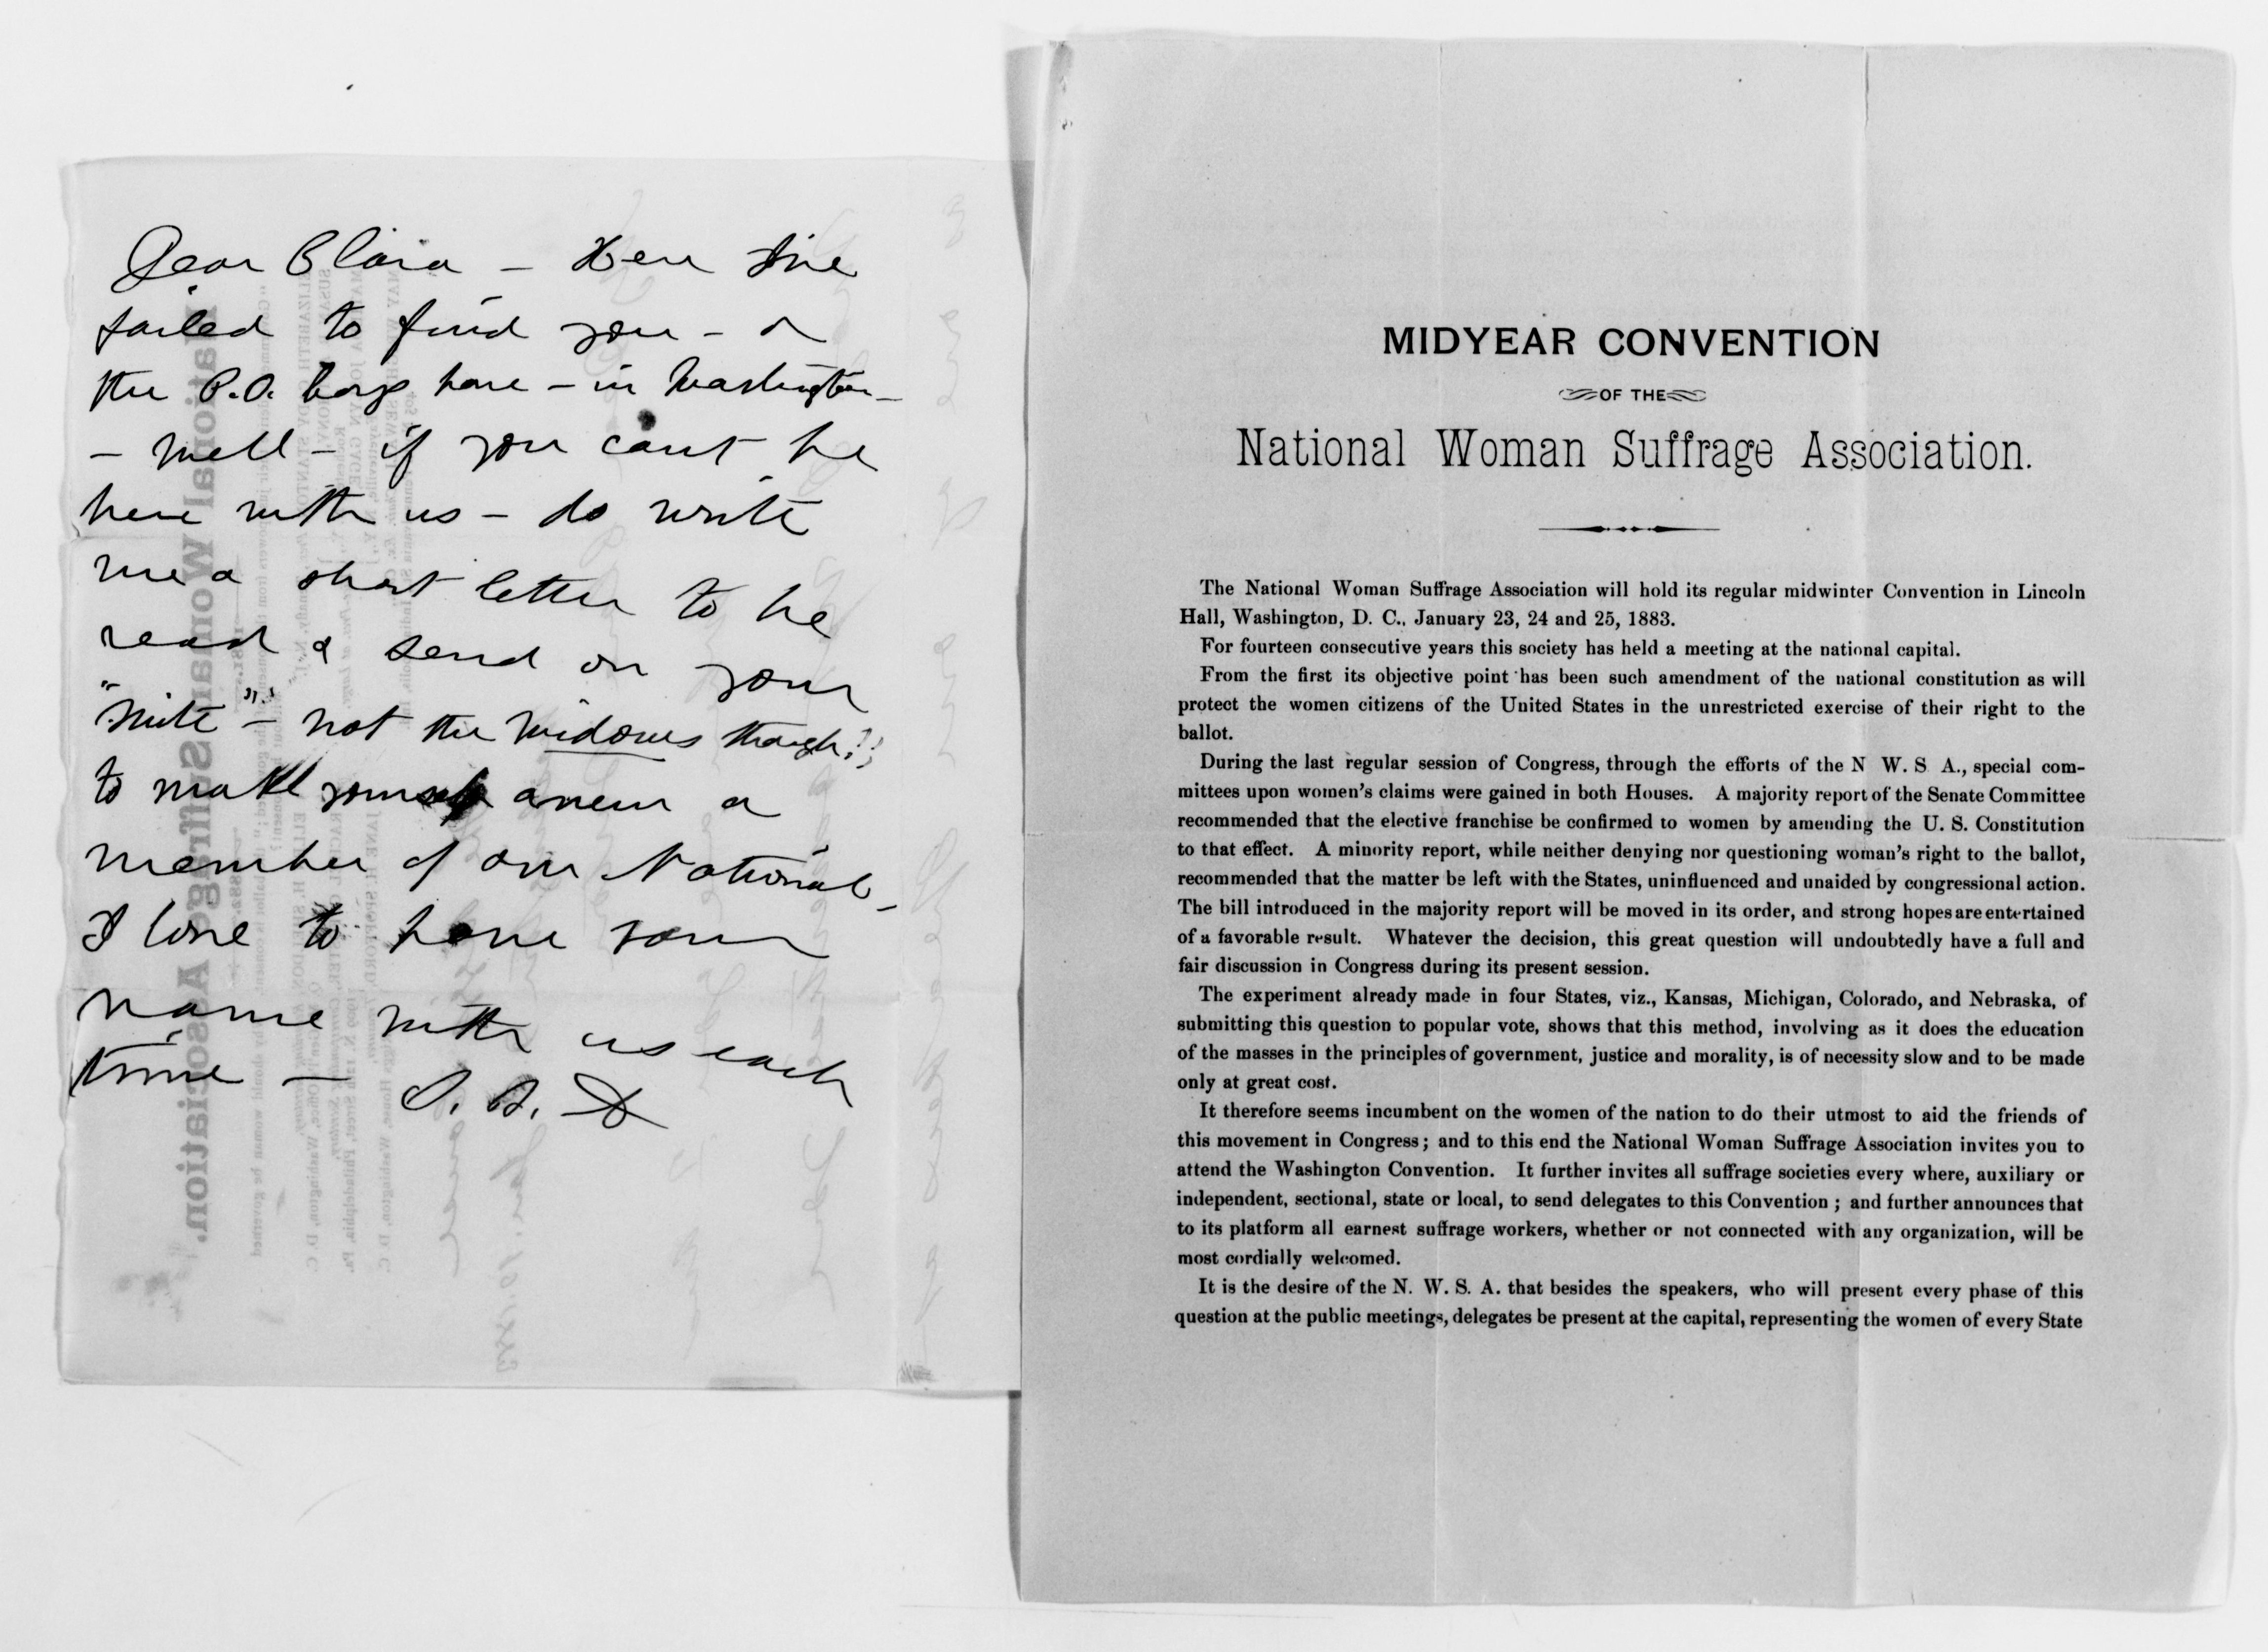 Dear Clara – Here I've
failed to find you – or
the P.O. boys have – in Washington –
– well – if you can't be
here with us – do write
me a short letter to be
read & send on your
"mite" – not the widows though!!
to make yourself anew a
member of our National –
I love to have your
name with us each
time – S. B. A
MIDYEAR CONVENTION
OF THE
National Woman Suffrage Association.
The National Woman Suffrage Association will hold its regular midwinter Convention in Lincoln
Hall, Washington, D. C., January 23, 24 and 25, 1883.
For fourteen consecutive years this society has held a meeting at the national capital.
From the first its objective point has been such amendment of the national constitution as will
protect the women citizens of the United States in the unrestricted exercise of their right to the
ballot.
During the last regular session of Congress, through the efforts of the N W. S A., special com-
mittees upon women's claims were gained in both Houses. A majority report of the Senate Committee
recommended that the elective franchise be confirmed to women by amending the U. S. Constitution
to that effect. A minority report, while neither denying nor questioning woman's right to the ballot,
recommended that the matter be left with the States, uninfluenced and unaided by congressional action.
The bill introduced in the majority report will be moved in its order, and strong hopes are entertained
of a favorable result. Whatever the decision, this great question will undoubtedly have a full and
fair discussion in Congress during its present session.
The experiment already made in four States, viz., Kansas, Michigan, Colorado, and Nebraska, of
submitting this question to popular vote, shows that this method, involving as it does the education
of the masses in the principles of government, justice and morality, is of necessity slow and to be made
only at great cost.
It therefore seems incumbent on the women of the nation to do their utmost to aid the friends of
this movement in Congress; and to this end the National Woman Suffrage Association invites you to
attend the Washington Convention. It further invites all suffrage societies every where, auxiliary or
independent, sectional, state or local, to send delegates to this Convention ; and further announces that
to its platform all earnest suffrage workers, whether or not connected with any organization, will be
most cordially welcomed.
It is the desire of the N. W. S. A. that besides the speakers, who will present every phase of this
question at the public meetings, delegates be present at the capital, representing the women of every State